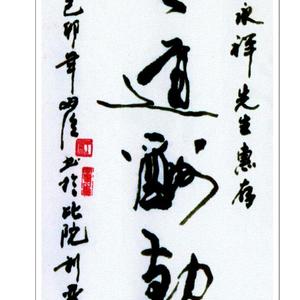 永祥先生惠存
道酬勤
己卯年
书于北院